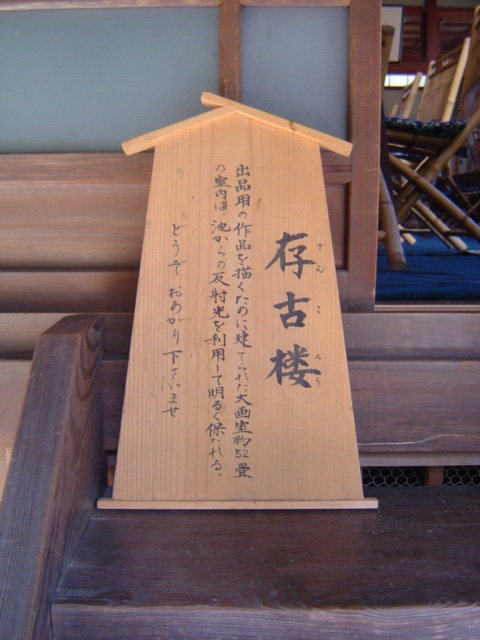 存古楼
ぞんころう
出品用の作品を描くために建てられた大画室約52畳
の室内は、池からの反射光を利用して明るく保たれる。
どうぞ おあがり 下さいませ